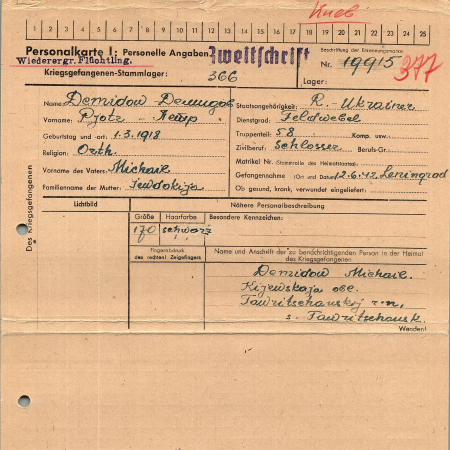 Киев
1 2 3 4 5 6 7 8 9 10 11 12 13 14 15 16 17 18 19 20 21 22 23 24 25
Personalkarte I: Personelle Angaben Zweitschrift
Beschriftung der Erkennungsmarke
Wiederergr. Flüchtling.
Nr. 19915 377
Kriegsgefangenen-Stammlager: 366
Lager:
Des Kriegsgefangenen
Name: Demidow Демидов
Vorname: Pjotr Петр
Geburtstag und -ort: 1.3.1918
Religion: Orth.
Vorname des Vaters: Michael
Familienname der Mutter: Jewdokija
Staatsangehörigkeit: R.-Ukrainer
Dienstgrad: Feldwebel
Truppenteil: 58 Komp. usw.
Zivilberuf: Schlosser Berufs-Gr.
Matrikel Nr. (Stammrolle des Heimatstaates)
Gefangennahme (Ort und Datum) 12.6.42 Leningrad
Ob gesund, krank, verwundet eingeliefert:
Lichtbild
Nähere Personalbeschreibung
Größe Haarfarbe Besondere Kennzeichen:
170 schwarz
Fingerabdruck
des rechten! Zeigefingers
Name und Anschrift der zu benachrichtigenden Person in der Heimat
des Kriegsgefangenen
Demidow Michael.
Kijewskaja obl.
Tawritschanskoj r-n,
s. Tawritschansk.
Wenden!